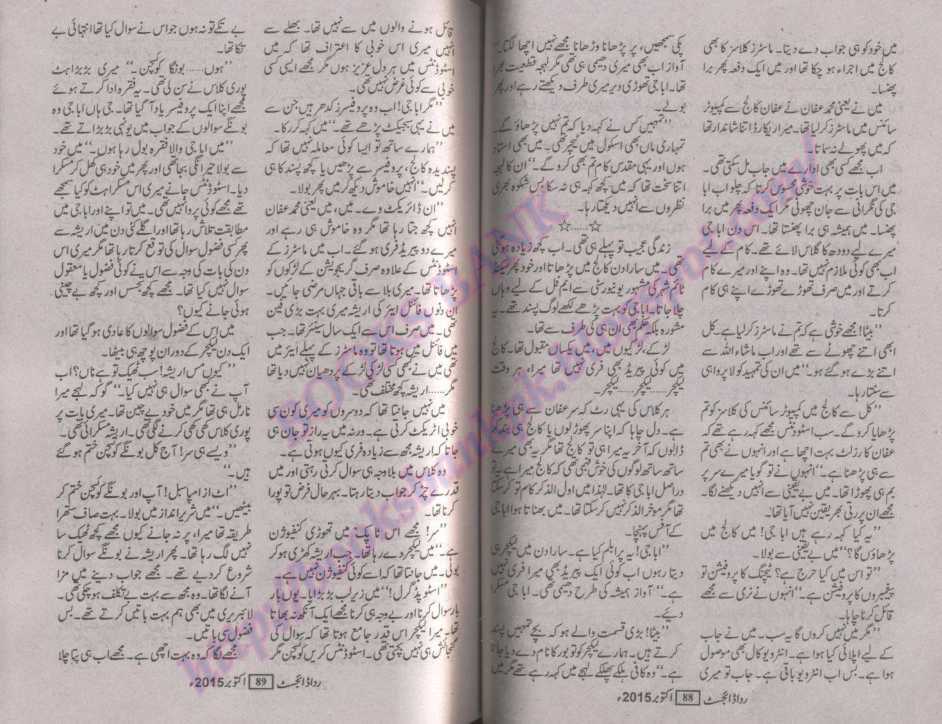 میں خود کو ہی جواب دے دیتا۔ ماسٹرز کلاسز کا بھی
کالج میں اجراء ہو چکا تھا اور میں ایک دفعہ پھر برا
پھنسا۔
میں نے یعنی محمد عفان نے عفان کالج سے کمپیوٹر
سائنس میں ماسٹرز کر لیا تھا۔ میرا ریکارڈ اتنا شاندار تھا
کہ میں پھولے نہ سماتا۔
اب مجھے کسی بھی ادارے میں جاب مل سکتی تھی۔
میں اس بات پر بہت خوشی محسوس کرتا کہ چلو ابا
جی کی نگرانی سے جان چھوٹی مگر ایک دفعہ پھر میں برا
پھنسا۔ میں ہمیشہ ہی برا پھنستا تھا۔ اس دن ابا جی
میرے لیے دودھ کا گلاس لائے تھے۔ کام کے لیے
اب بھی کوئی ملازم نہیں تھا۔ وہ اپنے اور میرے کام
کرتے اور میں صرف تھوڑے تھوڑے اپنے ہی کام
کرتا۔
”بیٹا! مجھے خوشی ہے کہ تم نے ماسٹرز کر لیا ہے۔ کل
ابھی اتنے چھوٹے سے تھے اور اب ماشاء اللہ سے
اتنے بڑے ہو گئے ہو۔“ میں ان کی تمہید کو لا پرواہی
سے سنتا رہا۔
”کل سے کالج میں کمپیوٹر سائنس کی کلاسز کو تم
پڑھایا کرو گے۔ سب اسٹوڈنٹس مجھے کہہ رہے تھے کہ
عفان کا رزلٹ بہت اچھا ہے اور انہوں نے بھی تم
سے ہی پڑھنا ہے۔“ انہوں نے تو گویا میرے سر پر
بم ہی پھوڑا تھا۔ میں بے یقینی سے انہیں دیکھنے لگا۔
مجھے ان پر رتی بھر یقین نہیں آیا تھا۔
”یہ کیا کہہ رہے ہیں ابا جی! میں کالج میں
پڑھاؤں گا؟“ میں بے یقینی سے بولا۔
”تو اس میں کیا حرج ہے؟ ٹیچنگ کا پروفیشن تو
پیغمبروں کا پروفیشن ہے۔“ انہوں نے نرمی سے مجھے
قائل کرنا چاہا۔
”مگر میں نہیں کروں گا یہ سب۔ میں نے جاب
کے لیے اپلائی کیا ہوا ہے۔ انٹرویو کال بھی موصول
ہوا ہے۔ بس اب انٹرویو باقی ہے۔ جاب تو میری
پکی سمجھیں، پر پڑھانا وڑھانا مجھے نہیں اچھا لگتا۔“
آواز اب بھی میری دھیمی ہی تھی مگر لہجہ قطعیت بھرا
تھا۔ ابا جی تھوڑی دیر میری طرف دیکھتے رہے اور پھر
بولے۔
”تمہیں کس نے کہہ دیا کہ تم نہیں پڑھاؤ گے۔
تمہاری ماں بھی اسکول میں ٹیچر تھی۔ میں بھی استاد
ہوں اور یہی مقدس کام تم بھی کرو گے۔“ ان کا لہجہ
اتنا سخت تھا کہ میں کچھ کہہ ہی نہ سکا بس شکوہ بھری
نظروں سے انہیں دیکھتا رہا۔
☆.....☆
زندگی عجیب تو پہلے ہی تھی۔ اب کچھ زیادہ ہو گئی
تھی۔ میں سارا دن کالج میں پڑھاتا اور خود پھر سیکنڈ
ٹائم شہر کی مشہور یونیورسٹی سے ایم فل کے لیے وہاں
چلا جاتا۔ ابا جی کو بہت پڑھے لکھے لوگ پسند تھے۔ یہ
مشورہ بلکہ حکم بھی ان ہی کی طرف سے تھا۔
لڑکے، لڑکیوں میں، میں یکساں مقبول تھا۔ کالج
میں کوئی پیریڈ بھی فری نہیں تھا میرا، ہر وقت
لیکچر......لیکچر......لیکچر۔
ہر کلاس کی یہی رٹ کہ سر عفان سے ہی پڑھنا
ہے۔ دل چاہا کہ اپنا سر پھوڑ لوں یا کالج ہی بند کر
ڈالوں کہ آخر یہ میرا ہی تو کالج تھا مگر یہ بھی میرے
ساتھ ساتھ لوگوں کی خوش فہمی تھی کہ کالج میرا ہے یہ تو
دراصل ابا جی کا تھا۔ لہٰذا میں اول الذکر کام تو کر سکتا
تھا مگر مؤخر الذکر نہیں کر سکتا تھا۔ میں بھناتا ہوا ابا جی
کے آفس پہنچا۔
”ابا جی! یہ پرابلم کیا ہے۔ سارا دن میں لیکچر ہی
دیتا رہوں اب کوئی ایک پیریڈ بھی میرا فری نہیں
ہے۔“ آواز ہمیشہ کی طرح دھیمی تھی۔ ابا جی مسکرا
دیئے۔
”بیٹا! بڑی قسمت والے ہو کہ بچے تمہیں پسند
کرتے ہیں۔ ہمارے لیکچر کو تو بور کا نام دے دیا جاتا
ہے۔“ وہ کافی ہلکے پھلکے لہجے میں کہہ رہے تھے مگر میں
رداڈائجسٹ 88 اکتوبر 2015ء
قائل ہونے والوں میں سے نہیں تھا۔ بھلے سے
انہیں میری اس خوبی کا اعتراف تھا کہ میں
اسٹوڈنٹس میں ہر دل عزیز ہوں مگر مجھے ایسی کسی
خوبی سے کوئی غرض نہیں تھی۔
”مگر ابا جی! اب وہ پروفیسرز کدھر ہیں جن سے
میں نے یہی سبجیکٹ پڑھے تھے۔“ میں کہہ کر رکا۔
”ہمارے ساتھ تو ایسا کوئی معاملہ نہیں تھا کہ
پسندیدہ کالج، پروفیسر سے پڑھیں یا کچھ پسند کا ہی
کر لیں۔“ انہیں خاموش دیکھ کر میں پھر بولا۔
”ان ڈائریکٹ وے۔ میں، میں یعنی محمد عفان
انہیں کچھ جتا رہا تھا مگر وہ خاموش ہی رہے اور
میرے دو پیریڈ فری ہو گئے۔ اب میں ماسٹرز کے
اسٹوڈنٹس کے علاوہ صرف گریجویشن کے لڑکوں کو
پڑھاتا تھا۔ میری بلا سے باقی جہاں مرضی جائیں۔
ان دنوں فائنل ایئر کی اریشہ میری بہت بڑی فین
تھی۔ میں صرف اس سے ایک سال سینئر تھا۔ جب
میں فائنل میں ہوتا تھا تو وہ ماسٹرز کے پہلے ایئر میں
تھی میں نے بھی کسی لڑکی لڑکے پر دھیان نہیں دیا تھا
مگر......اریشہ کچھ مختلف تھی۔
میں نہیں جانتا تھا کہ دوسروں کو میری کون سی
خوبی اٹریکٹ کرتی ہے۔ ورنہ میں یہ راز تو جان ہی
جاتا کہ اریشہ مجھ سے زیادہ فری کیوں ہوتی ہے۔
وہ کلاس میں بلاوجہ ہی سوال کرتی رہتی اور میں
قدرے چڑ کر جواب دیتا رہتا۔ بہرحال فرض تو پورا
کرنا تھا۔
”سر! مجھے اس ٹاپک میں تھوڑی کنفیوژن
ہے۔“ میں لیکچر دے رہا تھا۔ جب اریشہ کھڑی ہو کر
بولی۔ میں جانتا تھا کہ اسے کوئی کنفیوژن نہیں ہے۔
”اسٹوپڈ گرل!“ میں زیر لب بڑبڑایا۔ یوں بار
بار سوال کرنا اور بے وجہ ہی کرنا مجھے ایک آنکھ نہ بھاتا
تھا۔ میرا لیکچر اس قدر جامع ہوتا تھا کہ سوال کی
گنجائش ہی نہیں بچتی تھی۔ اسٹوڈنٹس کریں کوئسچن مگر
بے تکے تو نہ ہوں جو اس نے سوال کیا تھا انتہائی بے
تکا تھا۔
”ہوں......بونگا کوئسچن۔“ میری بڑبڑاہٹ
پوری کلاس نے سن لی تھی۔ یہ فقرہ ادا کرتے ہوئے
مجھے اپنا ایک پروفیسر یاد آ گیا تھا۔ جی ہاں ابا جی وہ
بونگے سوالوں کے جواب میں یونہی بڑبڑاتے تھے۔
”میں ابا جی والا فقرہ بول رہا ہوں۔“ میں خود
سے بولا حیرانگی بجا تھی اور پھر میں خود ہی کھل کر مسکرا
دیا۔ اسٹوڈنٹس جانے میری اس مسکراہٹ کو کیا سمجھے
تھے مجھے کوئی پروا نہیں تھی۔ میں تو اپنے اور ابا جی میں
مطابقت تلاش رہا تھا اور اگلے کئی دن میں اریشہ سے
پھر کسی فضول سوال کی توقع کرتا رہا تھا مگر میری اس
دن کی بات کی وجہ سے اس نے کوئی فضول یا معقول
سوال نہیں کیا تھا۔ مجھے کچھ تجسس اور کچھ بے چینی
ہوئی جانے کیوں؟
میں اس کے فضول سوالوں کا عادی ہو گیا تھا اور
ایک دن لیکچر کے دوران پوچھ ہی بیٹھا۔
”کیوں مس اریشہ! سب ٹھیک تو ہے ناں؟ اب
آپ نے بھی سوال ہی نہیں کیا۔“ گو کہ لہجہ میرا
نارمل ہی تھا مگر میں خود بے چین تھا۔ میری بات پر
پوری کلاس کھی کھی کرنے لگی تھی۔ اریشہ مسکرائی تھی۔
”ویسے ہی سر! آج کل بونگے کوئسچن ختم ہو گئے
ہیں۔“
”اٹ از امپاسبل! آپ اور بونگے کوئسچن ختم کر
بیٹھیں۔“ میں شریر انداز میں بولا۔ بہت صاف ستھرا
طریقہ تھا میرا، پر نہ جانے کیوں مجھے کچھ ٹھیک سا
نہیں لگ رہا تھا۔ پھر اریشہ نے بونگے سوال کرنا
شروع کر دیے تھے۔ مجھے جواب دینے میں مزا
آنے لگا تھا۔ وہ مجھ سے بہت بے تکلف ہو چکی تھی۔
لائبریری میں بھی ہم بہت باتیں کرتے تھے۔ بس
فضول سی باتیں۔
مجھے لگا کہ وہ بہت اچھی ہے۔ مجھے اب ہی پتا چلا
رداڈائجسٹ 89 اکتوبر 2015ء